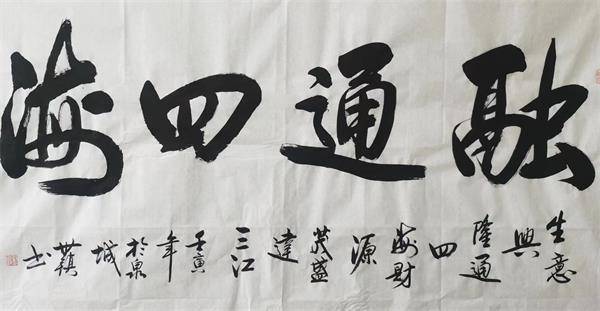 融通四海
生意興隆通四海財源茂盛達三江壬寅年於泉城書